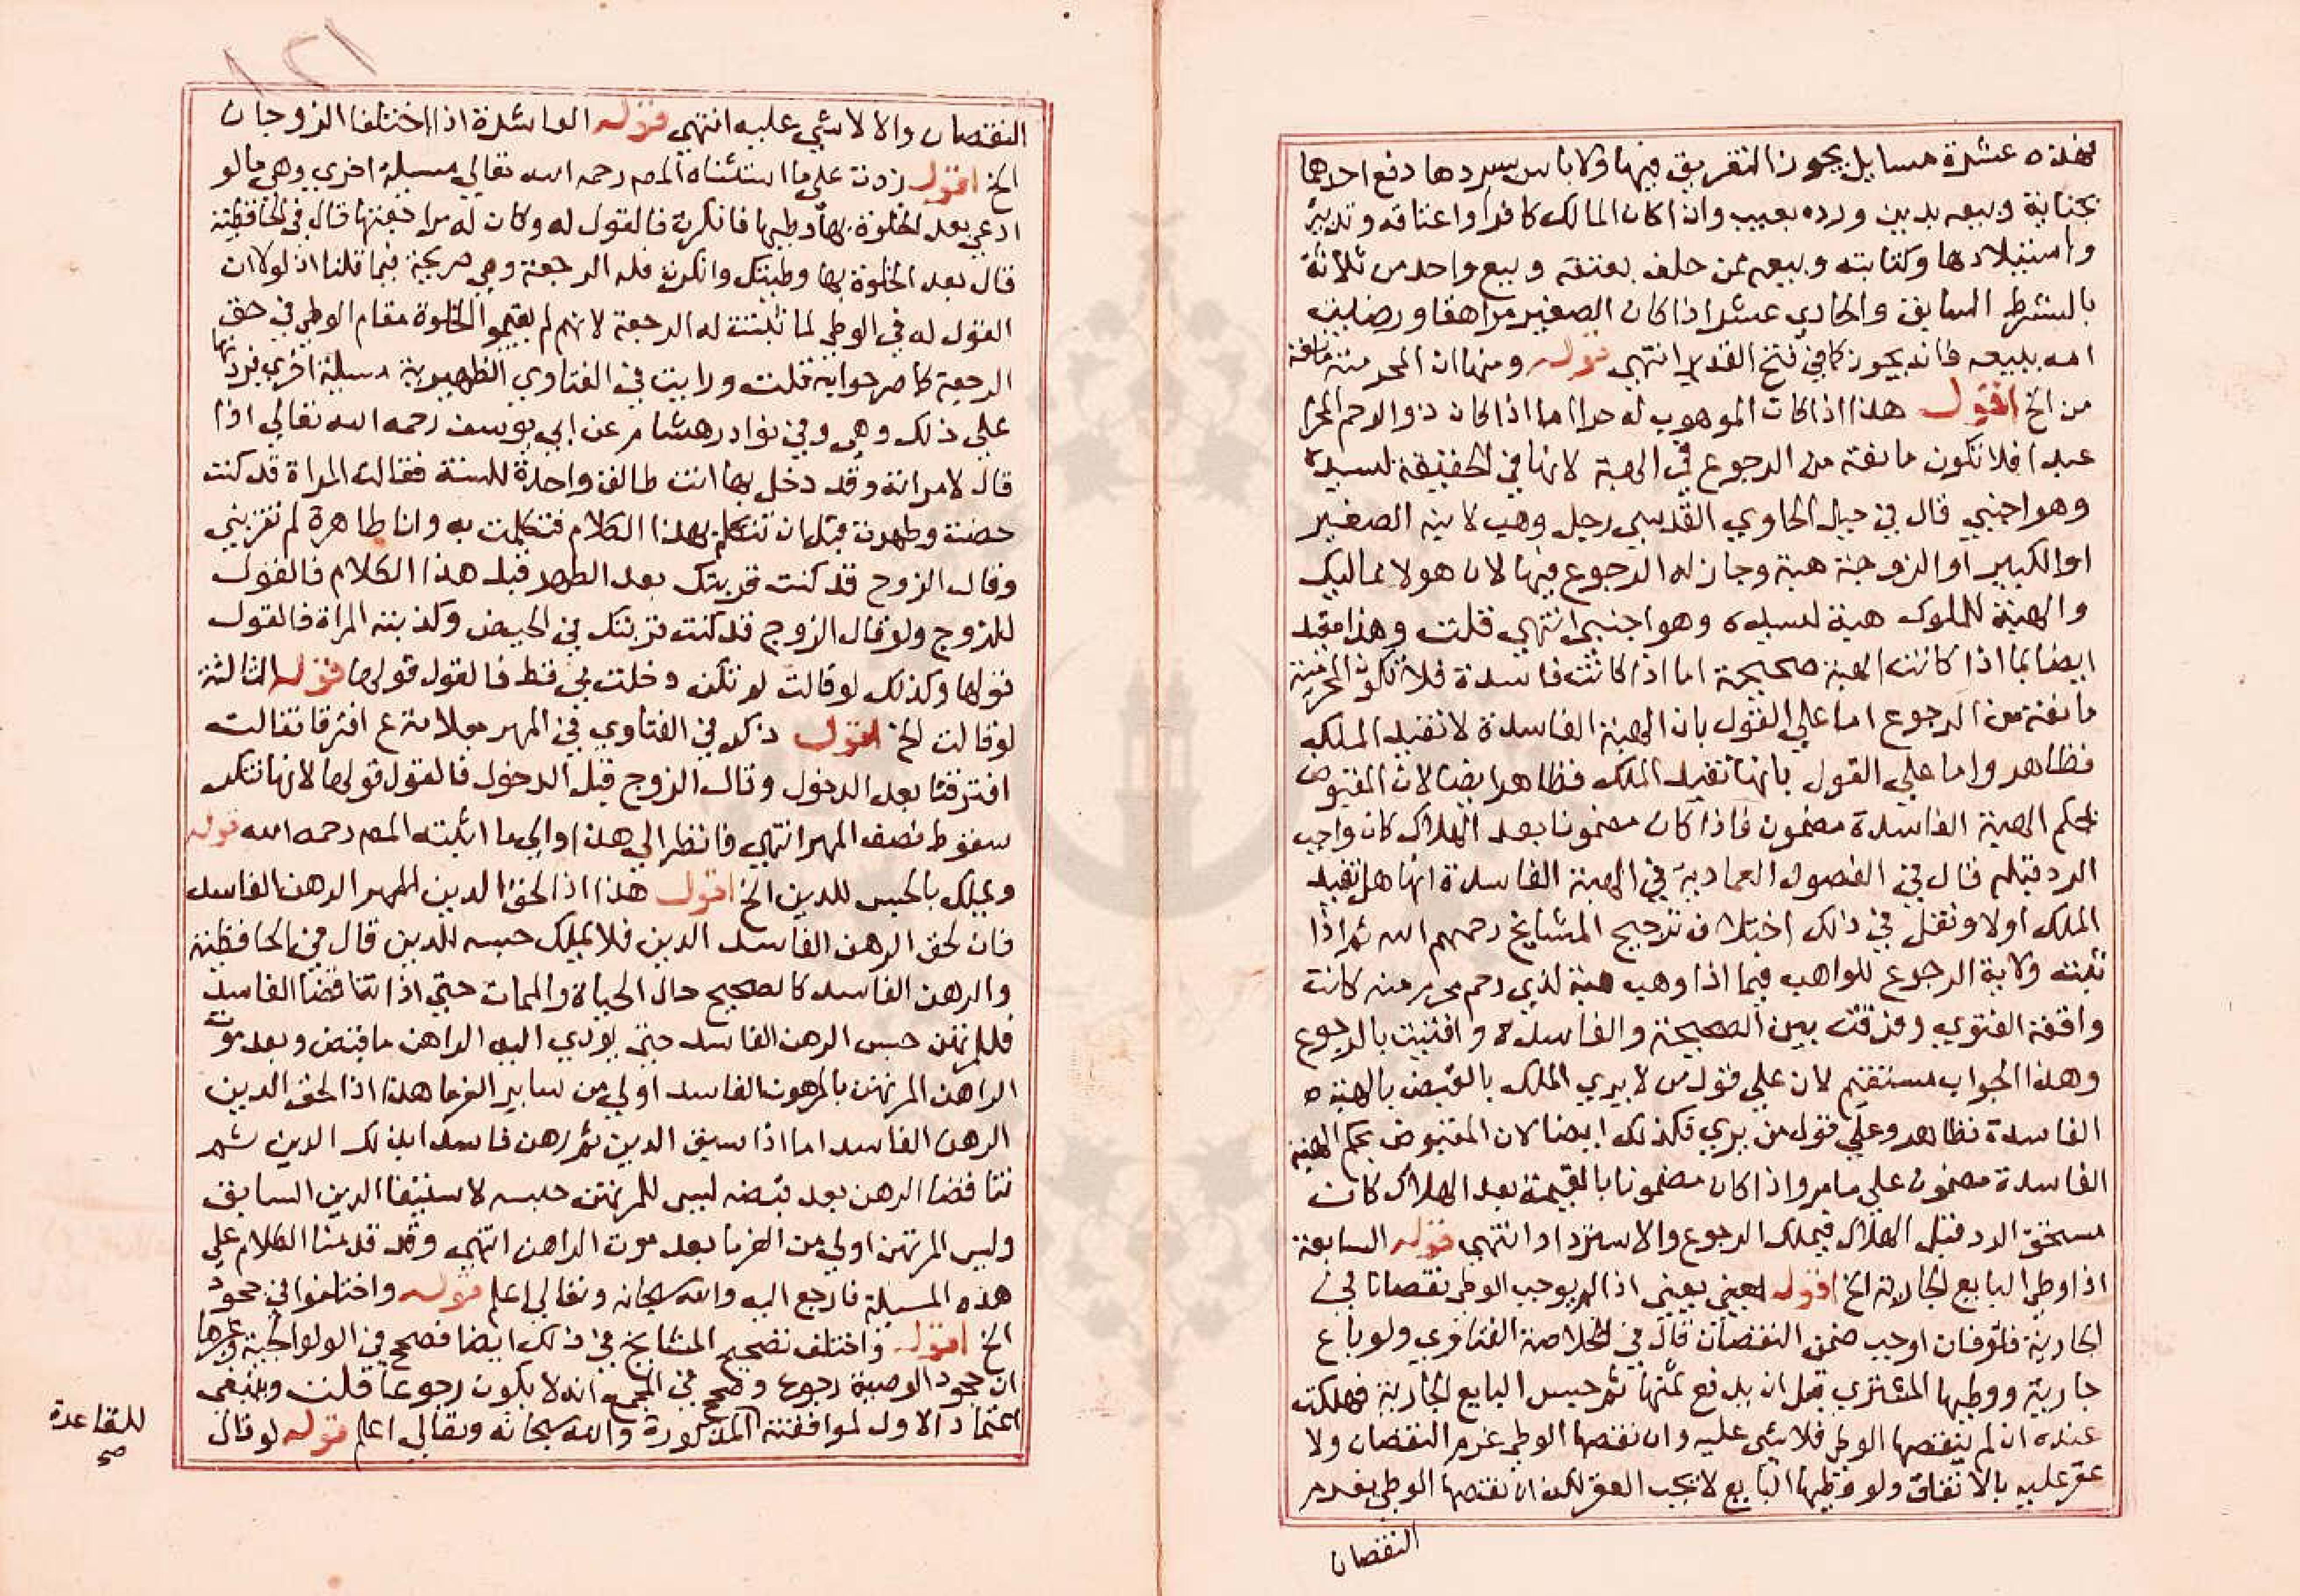 فهذه عشرة مسايل يجوز التفريق فيها ولا باس بسردها دفع احدهما
بجناية وبيعه بدين ورده بعيب واذا كان المالك كافرا واعتاقه وتدبيره
واستيلادها وكتابته وبيعه ممن حلف بعتقه وبيع واحد من ثلاثة
بالشرط السابق والحادي عشر اذا كان الصغير مراهقا ورضيت
امه ببيعه فانه يجوز كما في فتح القدير انتهي قوله ومنها ان المحرمية مانعة
من الخ اقول هذا اذا كان الموهوب له حرا اما اذا كان ذو الرحم المحرم
عبدا فلا تكون مانعة من الرجوع في الهبة لانها في الحقيقة لسيده
وهو اجنبي قال في حيل الحاوي القدسي رجل وهب لابنه الصغير
او الكبير او الزوجة هبة وجاز له الرجوع فيها لان هولا مماليك
والهبة للملوك هبة لسيده وهو اجنبي انتهي قلت وهذا مقيد
ايضا بما اذا كانت الهبة صحيحة اما اذا كانت فاسدة فلا تكون المحرمية
مانعة من الرجوع اما علي القول بان الهبة الفاسدة لا تفيد الملك
فظاهر واما علي القول بانها تفيد الملك فظاهر ايضا لان المقبوض
بحكم الهبة الفاسدة مضمون فاذا كان مضمونا بعد الهلاك كان واجب
الرد قبله قال في الفصول العمادية في الهبة الفاسدة انها هل تفيد
الملك اولا ونقل في ذلك اختلاف ترجيح المشايخ رحمهم الله ثم اذا
ثبتت ولاية الرجوع للواهب فيما اذا وهب هبة لذي رحم محرم منه كانت
واقعة الفتوي وفرقت بين الصحيحة والفاسدة وافتيت بالرجوع
وهذا الجواب مستقيم لان علي قول من لا يري الملك بالقبض بالهبة
الفاسدة فظاهر وعلي قول من يري فكذلك ايضا لان المقبوض بحكم الهبة
الفاسدة مضمون علي ما مر واذا كان مضمونا بالقيمة بعد الهلاك كان
مستحق الرد قبل الهلاك فيملك الرجوع والاسترداد انتهي قوله السابعة
اذا وطي البايع الجارية الخ اقول يعني اذا لم يوجب الوطي نقصانا في
الجارية فلو فان اوجب ضمن النقصان قال في الخلاصة الفتاوي ولو باع
جارية ووطيها المشتري قبل ان يدفع ثمنها ثم حبس البايع الجارية فهلكت
عنده ان لم ينقصها الوطي فلا شي عليه وان نقصها الوطي غرم النقصان ولا
عقر عليه بالاتفاق ولو وطيها البايع لا يجب العقر لكن ان نقصها الوطي يغرم
النقصان
١٢١
النقصان والا لا شي عليه انتهي قوله العاشرة اذا اختلفا الزوجان
الخ اقول زدت علي ما استثناه المص رحمه الله تعالي مسيلة اخري وهي ما لو
ادعي بعد الخلوة بها وطيها فانكرت فالقول له وكان له مراجعتها قال في الحافظية
قال بعد الخلوة بها وطيتك وانكرت فله الرجعة وهي صريحة فيما قلنا اذ لولا ان
القول له في الوطي لما ثبتت له الرجعة لانهم لم يقيموا الخلوة مقام الوطي في حق
الرجعة كما صرحوا به قلت ورايت في الفتاوي الظهيرية مسيلة اخري نزدتها
علي ذلك وهي وفي نوادر هشام عن ابي يوسف رحمه الله تعالي اذا
قال لامراته وقد دخل بها انت طالق واحدة للسنة فقالت المراة قد كنت
حضت وطهرت قبل ان تتكلم بهذا الكلام فتكلمت به وانا طاهرة لم تقربني
وقال الزوج قد كنت قربتك بعد الطهر قبل هذا الكلام فالقول
للزوج ولو قال الزوج قد كنت قربتك في الحيض وكذبته المراة فالقول
قولها وكذلك لو قالت لم تكن دخلت بي قط فالقول قولها قوله الثالثة
لو قالت الخ اقول ذكر في الفتاوي في المهر بعلامة ع افترقا فقالت
افترقنا بعد الدخول وقال الزوج قبل الدخول فالقول قولها لانها تنكر
سقوط نصف المهر انتهي فانظر الي هذا والي ما اثبته المص رحمه الله قوله
ويملك بالحبس للدين الخ اقول هذا اذا لحق الدين الرهن الفاسد
فان لحق الرهن الفاسد الدين فلا يملك حبسه للدين قال في الحافظية
والرهن الفاسد كالصحيح حال الحياة والممات حتي اذا تناقضا الفاسد
فللمرتهن حبس الرهن الفاسد حتي يودي اليه الراهن ما قبض وبعد موت
الراهن المرتهن بالمرهون الفاسد اولي من ساير الغرما هذا اذا لحق الدين
الرهن الفاسد اما اذا سبق الدين ثم رهن فاسدا بذلك الدين ثم
تناقضا الرهن بعد قبضه ليس للمرتهن حبسه لاستيفا الدين السابق
وليس المرتهن اولي من الغرما بعد موت الراهن انتهي وقد قدمنا الكلام علي
هذه المسيلة فارجع اليه والله سبحانه وتعالي اعلم قوله واختلفوا في جحود
الخ اقول واختلف تصحيح المشايخ في ذلك ايضا فصحح في الولوالجية وغيرها
ان جحود الوصية رجوعا وصحح في المجمع انه لا يكون رجوعا قلت وينبغي
اعتماد الاول لموافقته المذكورة والله سبحانه وتعالي اعلم قوله لو قال
للقاعدة
صح